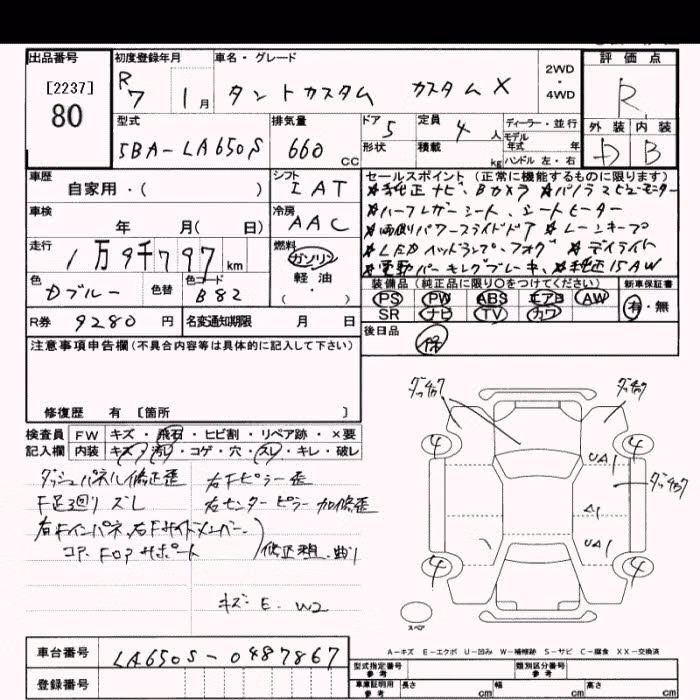 出品番号 初度登録年月 車名・グレード 2WD・4WD 評価点
[2237] 80 R7 1月 タントカスタム カスタムX R
型式 排気量 ドア 5 定員 4人 ディーラー・並行 外装 内装
5BA-LA650S 660cc 形状 積載 kg モデル年式 年 ハンドル 左・右 D B
車歴 シフト セールスポイント (正常に機能するものに限ります)
自家用・( ) IAT ☆純正ナビ、Bカメラ ☆パノラマビューモニター
車検 冷房 ☆ハーフレザーシート、シートヒーター
年 月( 日) AAC ☆両側パワースライドドア ☆レーンキープ
走行 燃料 ☆LEDヘッドランプ、フォグ ☆デイライト
1万9千797km ガソリン ☆電動パーキングブレーキ、☆純正15AW
色 色替 色コード 軽油 装備品 (純正品に限り○をつけてください) 新車保証書
Dブルー B82 ( ・ ) PS PW ABS エアB AW 有・無
R券 9280円 名変通知期限 月 日 SR ナビ TV カワ
後日品 保
注意事項申告欄 (不具合内容等は具体的に記入して下さい)
修復歴 有 [箇所 ]
検査員 FW キズ・飛石・ヒビ割・リペア跡・×要
記入欄 内装 キズ・汚れ・コゲ・穴・スレ・キレ・破レ
ダッシュパネル修正歪 右Fピラー歪
F足回りズレ 右センターピラー加修歪
右Fインパネ、右Fサイドメンバー、
コア、Fロアサポート 修正歪・曲り
キズ・E・W2
ダッチャク ダッチャク
4 4
UA1
ダッチャク
A1
UA1
4 4
スペア
A-キズ E-エクボ U-凹み W-補修跡 S-サビ C-腐食 XX-交換済
車台番号 LA650S-0487867 型式指定番号 参考 類別区分番号 参考
登録番号 車庫証明用 参考 長さ cm 幅 cm 高さ cm